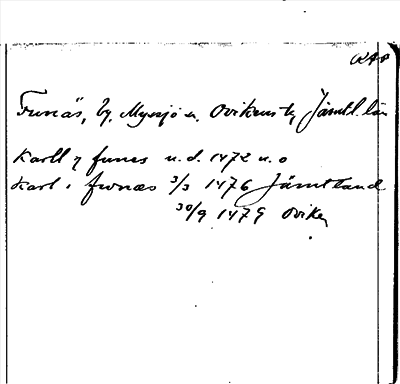 Funäs, by, Myssjö s. Ovikens tg, Jämtl. län
Karll j funes u.d. 1472 u.o
Karl i funæs 3/3 1476 Jämtland
30/9 1479 Oviken